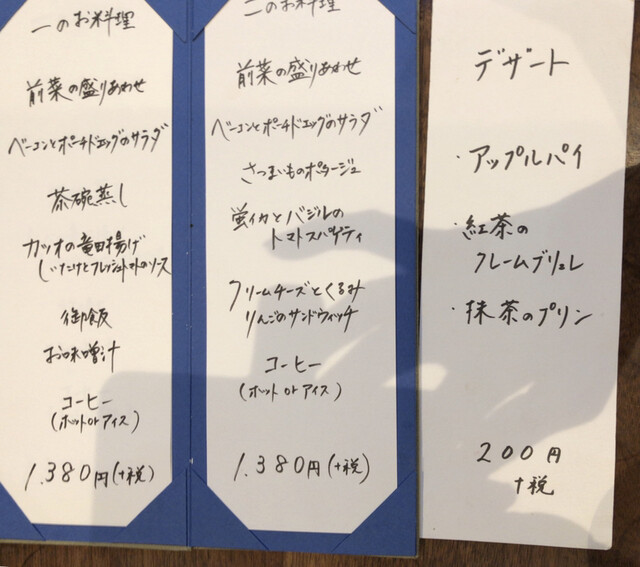 一のお料理
前菜の盛りあわせ
ベーコンとポーチドエッグのサラダ
茶碗蒸し
カツオの竜田揚げ
しいたけとフレッシュトマトのソース
御飯
お味噌汁
コーヒー
(ホット or アイス)
1.380円(+税)
二のお料理
前菜の盛りあわせ
ベーコンとポーチドエッグのサラダ
さつまいものポタージュ
蛍イカとバジルの
トマトスパゲティ
クリームチーズとくるみ
りんごのサンドウィッチ
コーヒー
(ホット or アイス)
1.380円(+税)
デザート
・アップルパイ
・紅茶の
クレームブリュレ
・抹茶のプリン
200円
+税